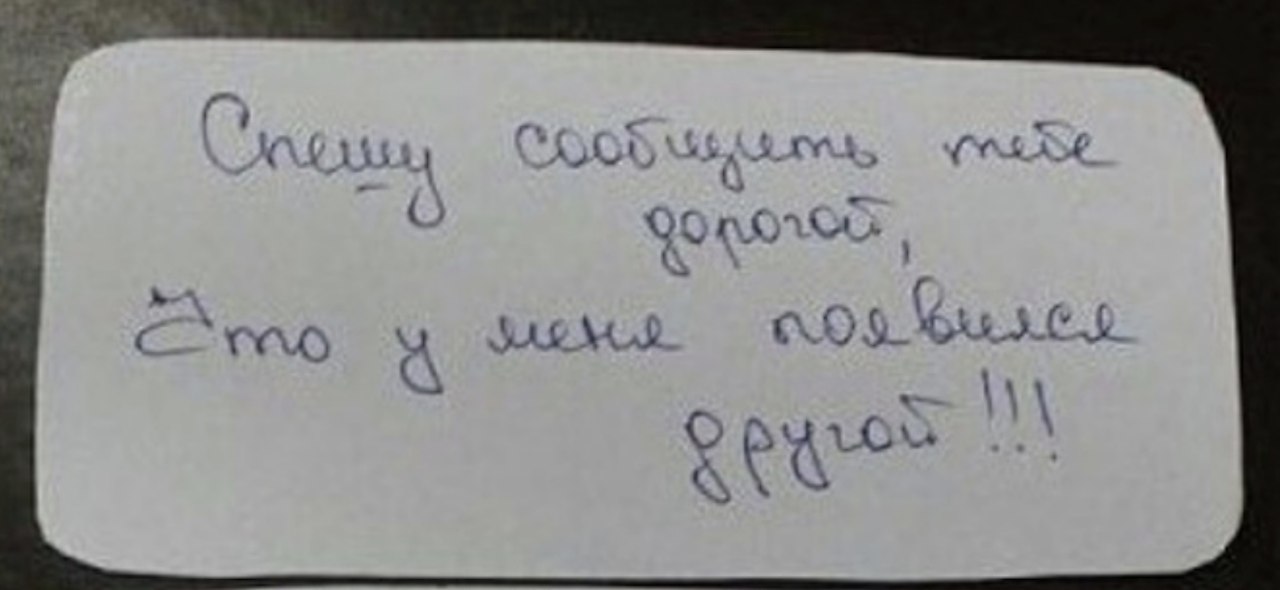 Спешу сообщить тебе
дорогой,
Что у меня появился
другой!!!